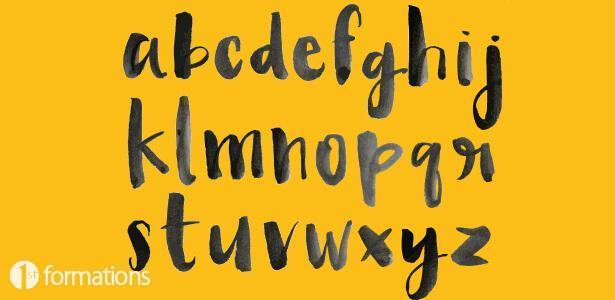 abcdefghij
klmnopqr
stuvwxyz
1st formations